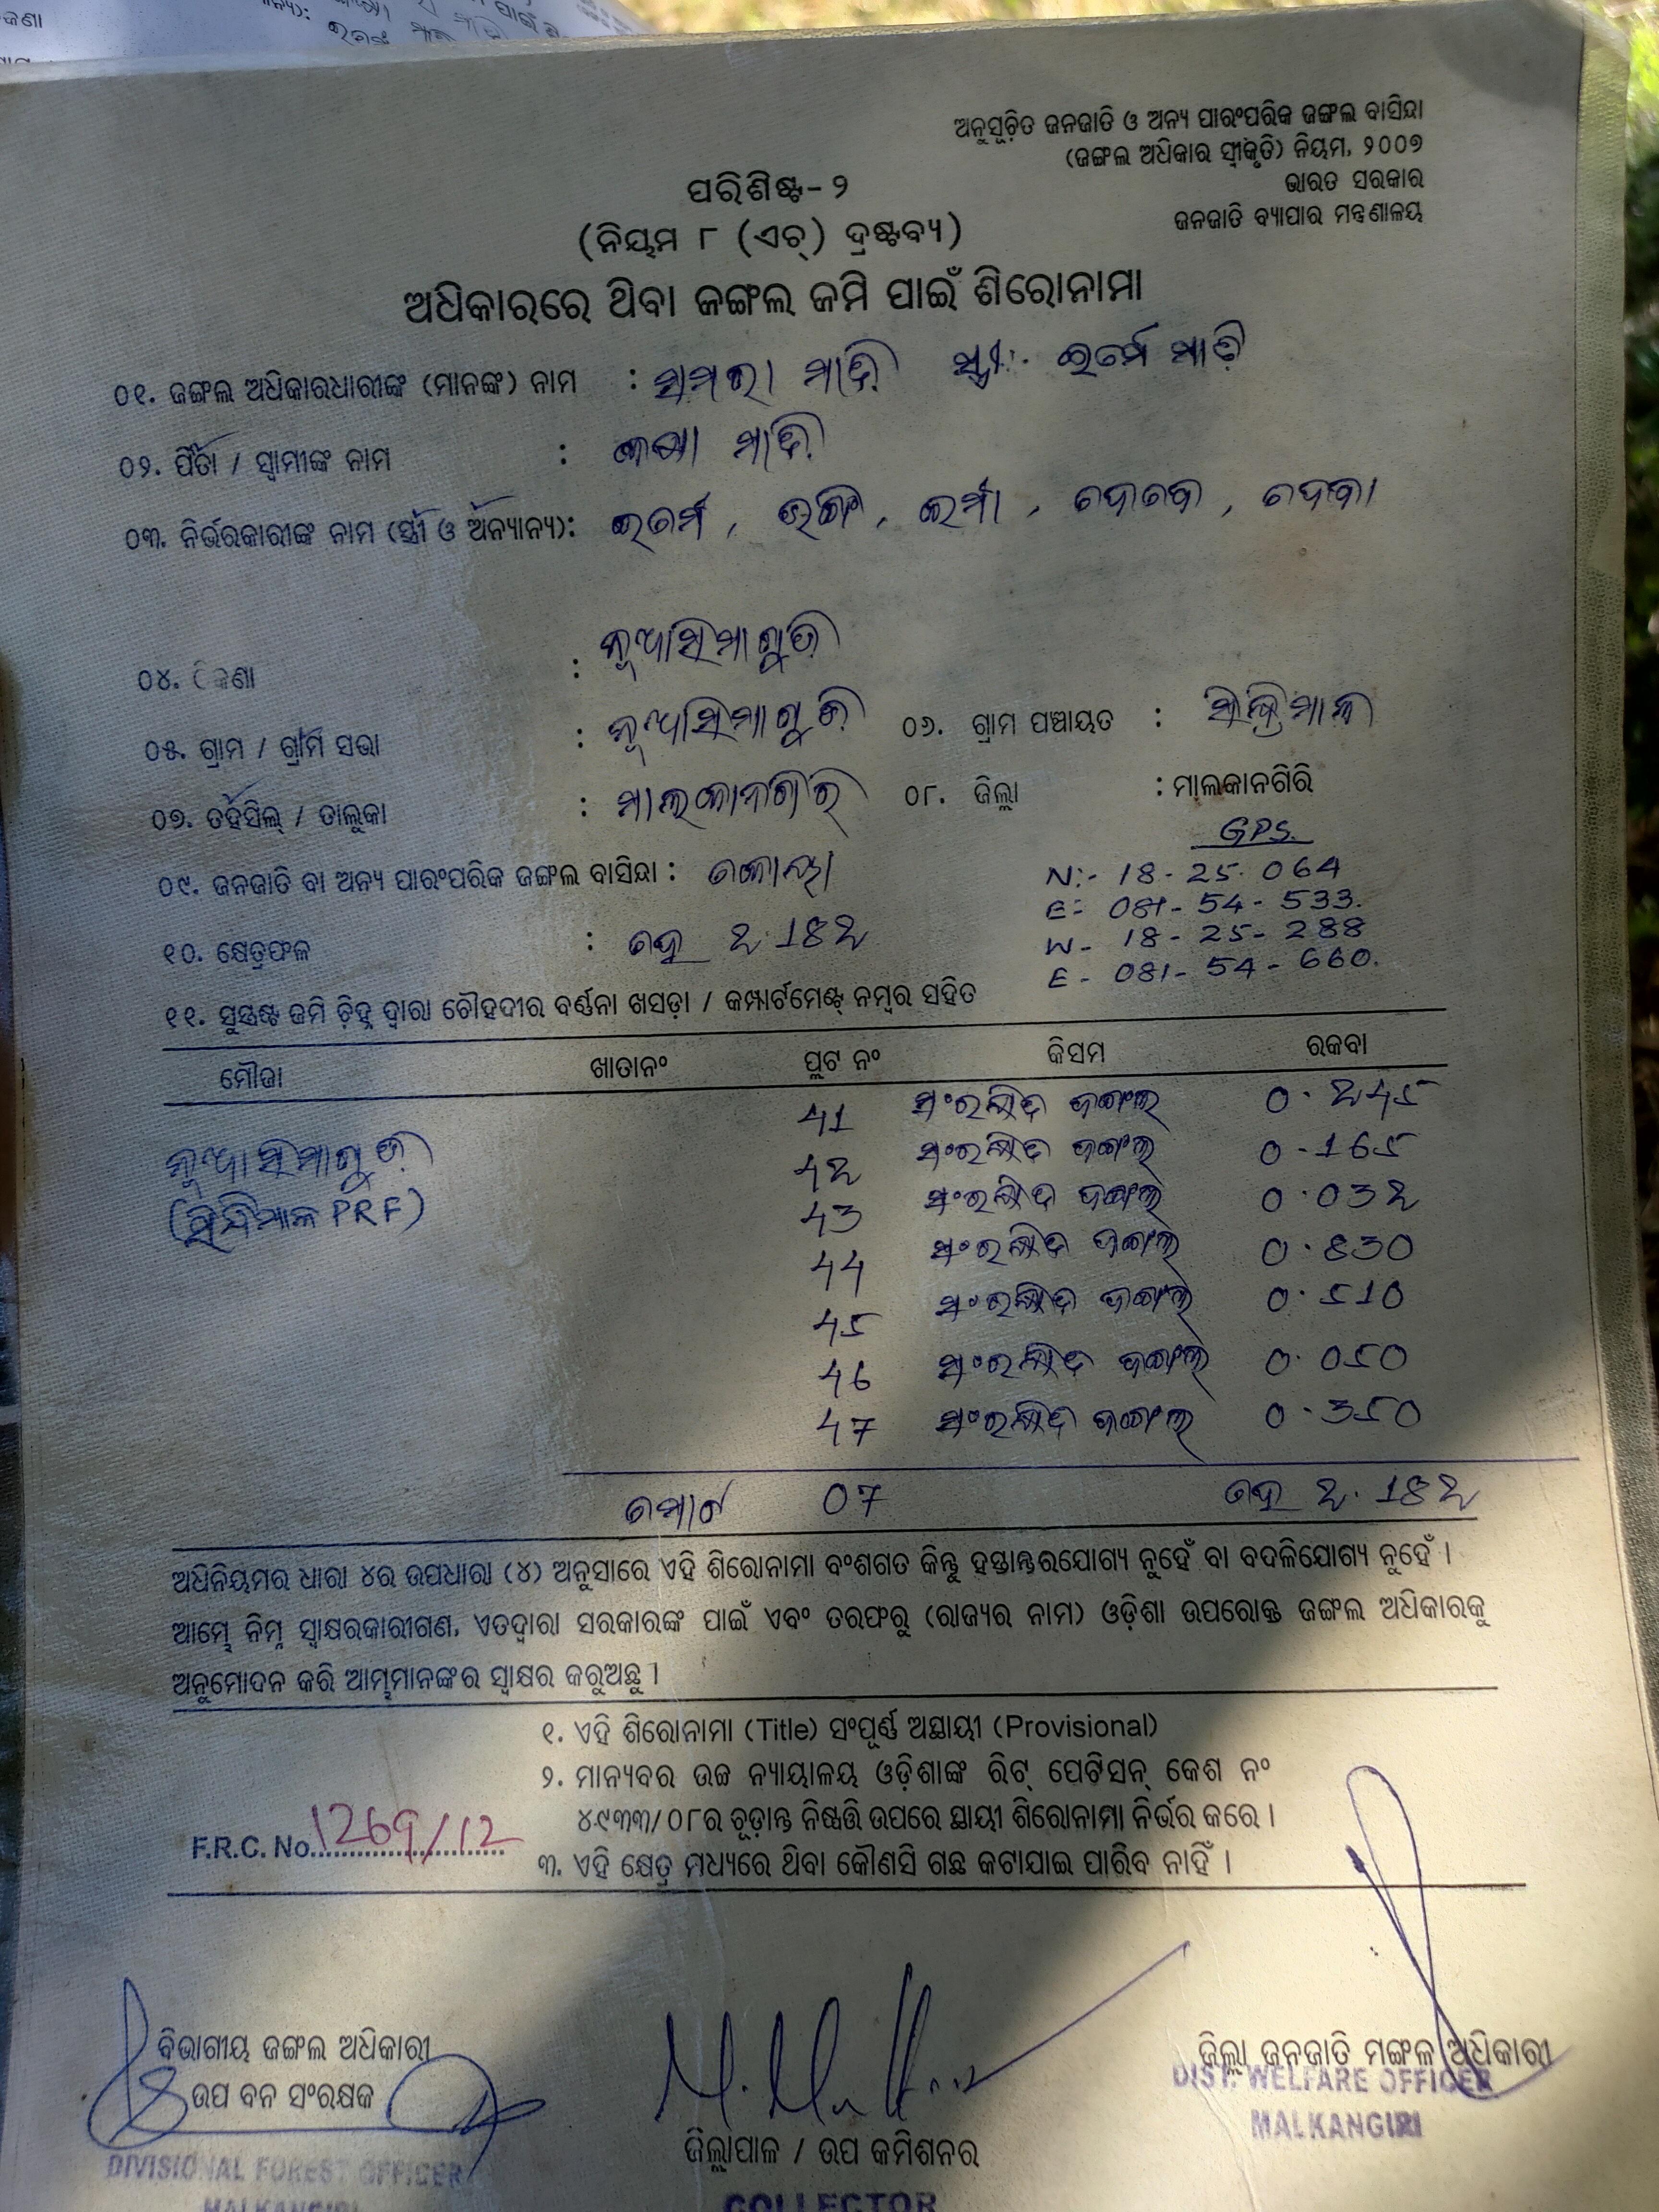 ଅନୁସୂଚିତ ଜନଜାତି ଓ ଅନ୍ୟ ପାରଂପରିକ ଜଙ୍ଗଲ ବାସିନ୍ଦା
(ଜଙ୍ଗଲ ଅଧିକାର ସ୍ୱୀକୃତି) ନିୟମ, ୨୦୦୭
ଭାରତ ସରକାର
ଜନଜାତି ବ୍ୟାପାର ମନ୍ତ୍ରଣାଳୟ
ପରିଶିଷ୍ଟ-୨
(ନିୟମ ୮ (ଏଚ୍) ଦ୍ରଷ୍ଟବ୍ୟ)
ଅଧିକାରରେ ଥିବା ଜଙ୍ଗଲ ଜମି ପାଇଁ ଶିରୋନାମା
୦୧. ଜଙ୍ଗଲ ଅଧିକାରଧାରୀଙ୍କ (ମାନଙ୍କ) ନାମ : ସମରା ମାଡ଼ି ସ୍ତ୍ରୀ:- ଇରମେ ମାଡ଼ି
୦୨. ପିତା / ସ୍ୱାମୀଙ୍କ ନାମ : ମାଡ଼ି
୦୩. ନିର୍ଭରକାରୀଙ୍କ ନାମ (ସ୍ତ୍ରୀ ଓ ଅନ୍ୟାନ୍ୟ): ଇରମେ, ଦେବା
୦୪. ଠିକଣା : ନୂଆସିମାଗୁଡ଼ି
୦୫. ଗ୍ରାମ / ଗ୍ରାମ ସଭା : ନୂଆସିମାଗୁଡ଼ି ୦୬. ଗ୍ରାମ ପଞ୍ଚାୟତ :
୦୭. ତହସିଲ୍ / ତାଲୁକା : ମାଲକାନଗିରି ୦୮. ଜିଲ୍ଲା : ମାଲକାନଗିରି
୦୯. ଜନଜାତି ବା ଅନ୍ୟ ପାରଂପରିକ ଜଙ୍ଗଲ ବାସିନ୍ଦା : କୋୟା
GPS.
N:- 18-25-064
E:- 081-54-533.
W- 18-25-288
E- 081-54-660.
୧୦. କ୍ଷେତ୍ରଫଳ : ହେ 2.182
୧୧. ସୁସ୍ପଷ୍ଟ ଜମି ଚିହ୍ନ ଦ୍ୱାରା ଚୌହଦୀର ବର୍ଣ୍ଣନା ଖସଡ଼ା / କମ୍ପାର୍ଟମେଣ୍ଟ୍ ନମ୍ବର ସହିତ
ମୌଜା ଖାତାନଂ ପ୍ଲଟ ନଂ କିସମ ରକବା
41 ସଂରକ୍ଷିତ ଜଙ୍ଗଲ 0.245
ନୂଆସିମାଗୁଡ଼ି 42 ସଂରକ୍ଷିତ ଜଙ୍ଗଲ 0.165
(ସିନ୍ଧିମାଳ PRF) 43 ସଂରକ୍ଷିତ ଜଙ୍ଗଲ 0.032
44 ସଂରକ୍ଷିତ ଜଙ୍ଗଲ 0.830
45 ସଂରକ୍ଷିତ ଜଙ୍ଗଲ 0.510
46 ସଂରକ୍ଷିତ ଜଙ୍ଗଲ 0.050
47 ସଂରକ୍ଷିତ ଜଙ୍ଗଲ 0.350
ମୋଟ 07 ହେ 2.182
ଅଧିନିୟମର ଧାରା ୪ର ଉପଧାରା (୪) ଅନୁସାରେ ଏହି ଶିରୋନାମା ବଂଶଗତ କିନ୍ତୁ ହସ୍ତାନ୍ତରଯୋଗ୍ୟ ନୁହେଁ ବା ବଦଳିଯୋଗ୍ୟ ନୁହେଁ ।
ଆମ୍ଭେ ନିମ୍ନ ସ୍ୱାକ୍ଷରକାରୀଗଣ, ଏତଦ୍ୱାରା ସରକାରଙ୍କ ପାଇଁ ଏବଂ ତରଫରୁ (ରାଜ୍ୟର ନାମ) ଓଡ଼ିଶା ଉପରୋକ୍ତ ଜଙ୍ଗଲ ଅଧିକାରକୁ
ଅନୁମୋଦନ କରି ଆମ୍ଭମାନଙ୍କର ସ୍ୱାକ୍ଷର କରୁଅଛୁ ।
୧. ଏହି ଶିରୋନାମା (Title) ସଂପୂର୍ଣ୍ଣ ଅସ୍ଥାୟୀ (Provisional)
୨. ମାନ୍ୟବର ଉଚ୍ଚ ନ୍ୟାୟାଳୟ ଓଡ଼ିଶାଙ୍କ ରିଟ୍ ପେଟିସନ୍ କେଶ ନଂ
୪୯୩୩/୦୮ର ଚୂଡ଼ାନ୍ତ ନିଷ୍ପତ୍ତି ଉପରେ ସ୍ଥାୟୀ ଶିରୋନାମା ନିର୍ଭର କରେ ।
F.R.C. No. 1269/12
୩. ଏହି କ୍ଷେତ୍ର ମଧ୍ୟରେ ଥିବା କୌଣସି ଗଛ କଟାଯାଇ ପାରିବ ନାହିଁ ।
ବିଭାଗୀୟ ଜଙ୍ଗଲ ଅଧିକାରୀ
ଉପ ବନ ସଂରକ୍ଷକ
DIVISIONAL FOREST OFFICER
MALKANGIRI
ଜିଲ୍ଲାପାଳ / ଉପ କମିଶନର
COLLECTOR
ଜିଲ୍ଲା ଜନଜାତି ମଙ୍ଗଳ ଅଧିକାରୀ
DIST. WELFARE OFFICER
MALKANGIRI